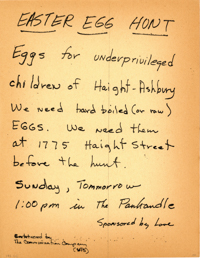 EASTER EGG HUNT
Eggs for underprivileged
children of Haight-Ashbury
We need hard boiled (or raw)
EGGS. We need them
at 1775 Haight Street
before the hunt.
Sunday, Tommorrow
1:00 pm in The Panhandle
Sponsored by Love
The Communication Company